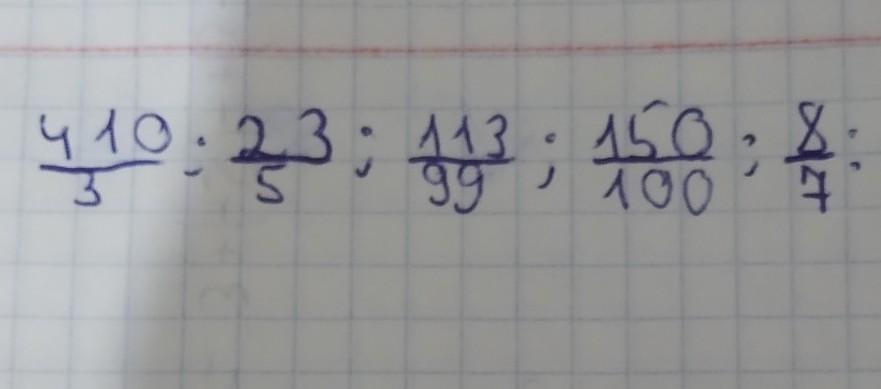 410/3 ; 23/5 ; 113/99 ; 150/100 ; 8/7 :